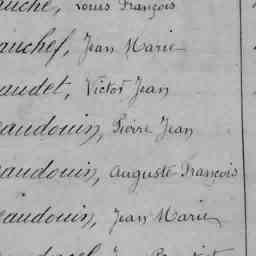 auche, Louis François
auchef, Jean Marie
audet, Victor Jean
eaudouin, Pierre Jean
eaudouin, Auguste François
eaudouin, Jean Marie